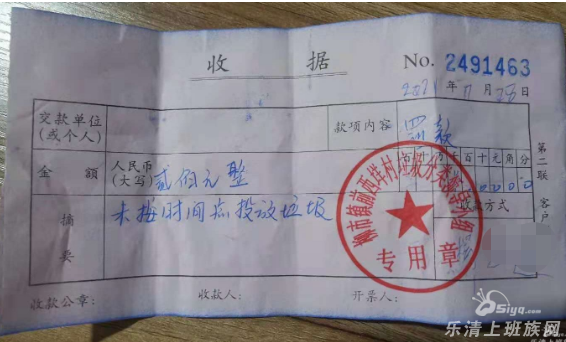 收 据
No. 2491463
2021 年 11 月 28 日
交款单位
(或个人)
款项内容 罚款
金 额
人民币
(大写) 贰佰元整
百 十 万 千 百 十 元 角 分
收款方式
摘
要
未按时间点投放垃圾
专用章
第二联
客户
收款公章:
收款人:
开票人:
5iyq.com
乐清上班族网